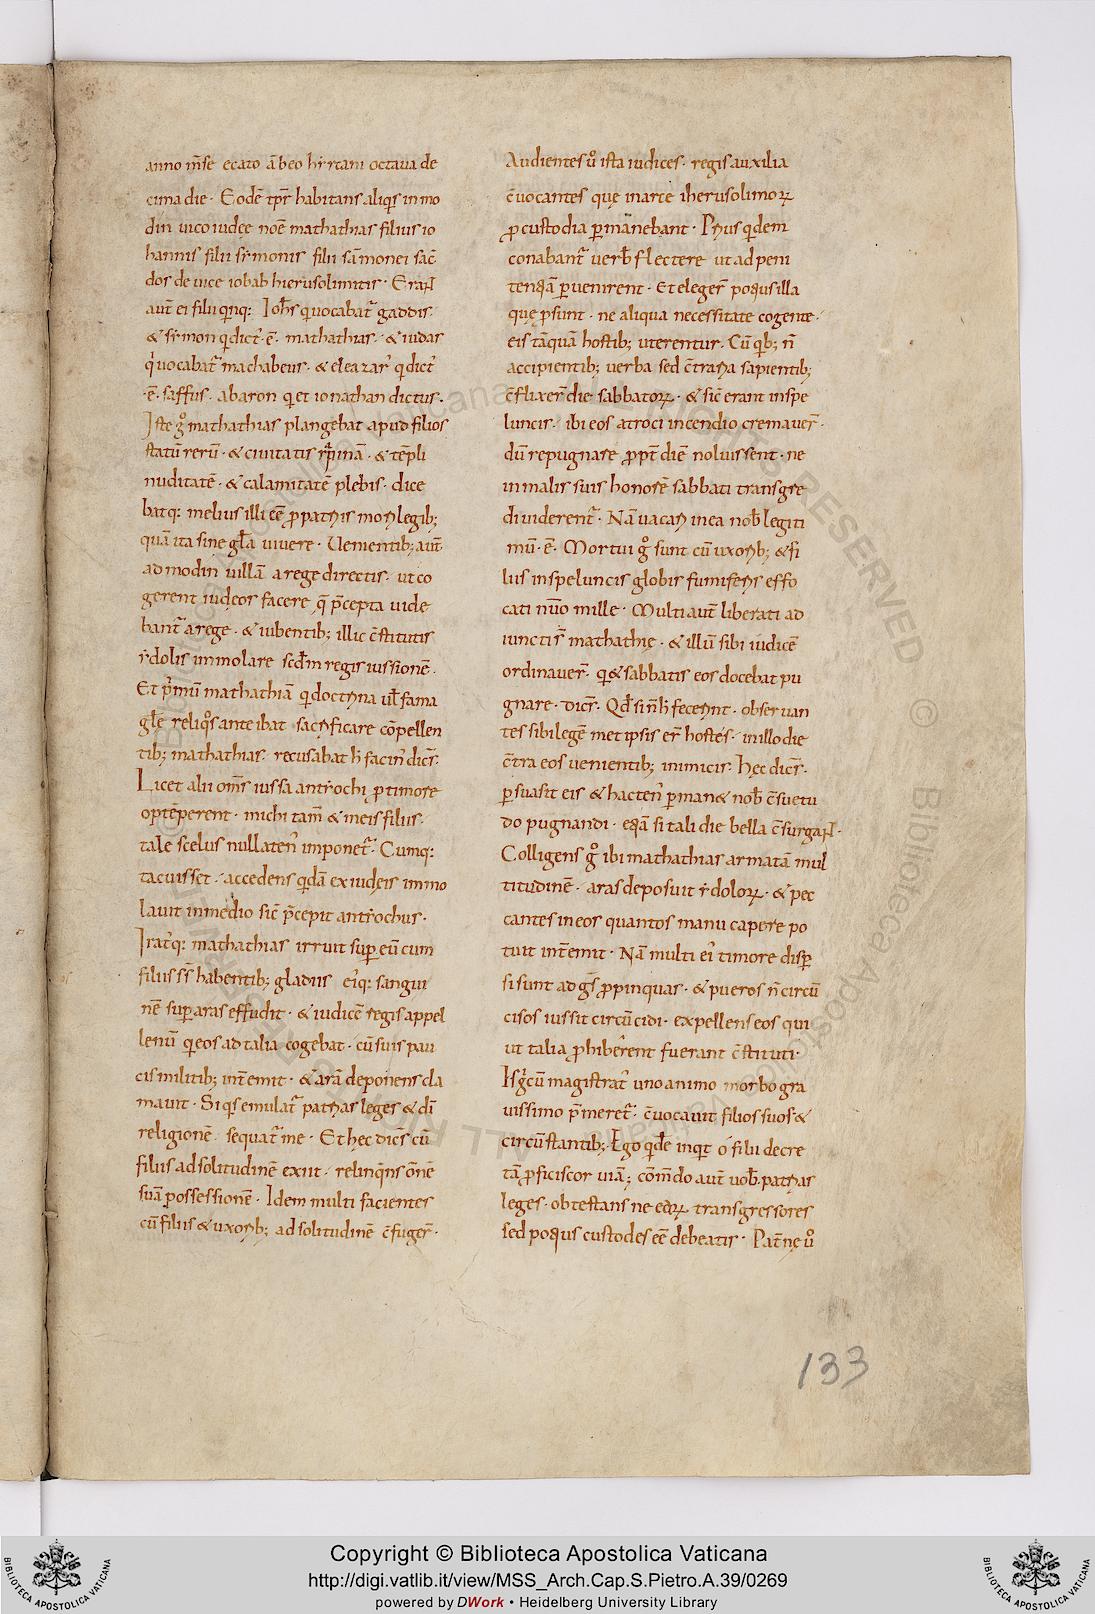 anno m̅se ecato ab eo hyrcani octaua de
cima die · Eodē tp̅r habitans aliq̅s in mo
din uico iudee noē mathathias filius io
hannis filii symonis filii samonei sac̅
dos de uice iobab hierusolimitis · Erant
aut̅ ei filii q̅nq; Ioh̅s q̅ uocabat̅ gaddis ·
& symon q̅ dict᷒ · ē · mathathias · & iudas
q̅ uocabat̅ machabeus · & eleazar᷒ q̅ dict᷒
· ē · saffus · abaron q̅ et ionathan dictus ·
Iste g̊ mathathias plangebat apud filios
statū rerū · & ciuitatis rapinā · & tēpli
nuditatē · & calamitatē plebis · dice
batq; melius illi eē ꝓ patriis mori legib;
quā ita sine gl̅a uiuere · Uenientib; aut̅
ad modin uillā a rege directis · ut co
gerent iudeos facere q̅ p̅cepta uide
bant̅ a rege · & iubentib; illic c̅stitutis
ydolis immolare scd̅m regis iussionē ·
Et p̅mū mathathiā q̅ doctrina ul̅ fama
gl̅e reliq̊s anteibat sacrificare cōpellen
tib; mathathias · recusabat h̅ facin᷒ dic̅s ·
Licet alii om̅s iussa antyochi ꝓ timore
optēperent · michi tam̅ & meis filiis ·
tale scelus nullaten᷒ imponet̅ · Cumq;
tacuisset · accedens q̅dā ex iudeis immo
lauit in medio sic̅ p̅cepit antyochus ·
Irat᷒q; mathathias irruit sup̅ eū cum
filiis ss̅ habentib; gladiis ei᷒q; sangui
nē super aras effudit · & iudicē regis appel
lenū q̅ eos ad talia cogebat · cū suis pau
cis militib; int̅emit · & arā deponens cla
mauit · Si q̅s emulat̅ patrias leges & di̅
religionē sequat̅ me · Et hec dic̅s cū
filiis ad solitudinē exiit · relinq̅ns om̅ē
suā possessionē · Idem multi facientes
cū filiis & uxorib; ad solitudinē c̅fuger̅ ·
Audientes ů ista iudices · regis auxilia
c̅uocantes quę in arce iherusolimoꝝ
ꝓ custodia ꝑmanebant · Prius q̅dem
conabant̅ uerb̅ flectere ut ad peni
tenqā ꝑuenirent · Et eleger̅ poqus illa
quę p̅sunt · ne aliqua necessitate cogente ·
eis tāquā hostib; uterentur · Cū q̅b; n̅
accipientib; uerba sed c̅traria sapientib;
c̅flixer̅ die sabbatoꝝ · & sic̅ erant in spe
luncis · ibi eos atroci incendio cremauer̅ ·
dū repugnare ꝓpt̅ diē noluissent · ne
in malis suis honorē sabbati transgre
di uiderent̅ · Nā uacari in ea nob̅ legiti
mū · ē · Mortui g̊ sunt cū uxorib; & fi
liis in speluncis globis fumiferis effo
cati nu̅o mille · Multi aut̅ liberati ad
iuncti s̅ mathathię · & illū sibi iudicē
ordinauer̅ · q̅ & sabbatis eos docebat pu
gnare · dic̅s · Qd̅ si n̅ h̅ fecerint · obseruan
tes sibi legē met ipsis er̅ hostes · in illo die
c̅tra eos uenientib; inimicis · Hęc dic̅s ·
ꝑsuasit eis & hacten᷒ ꝑman& nob̅ c̅suetu
do pugnandi · eqā si tali die bella c̅surgant ·
Colligens g̊ ibi mathathias armatā mul
titudinē · aras deposuit ydoloꝝ · & pec
cantes in eos quantos manu capere po
tuit int̅emit · Nā multi ei᷒ timore disꝑ
si sunt ad g̅s ꝓpinquas · & pueros n̅ circū
cisos iussit circūcidi · expellens eos qui
ut talia ꝓhiberent fuerant c̅stituti ·
Is g̊ cū magistrat᷒ uno animo morbo gra
uissimo p̅meret̅ · c̅uocauit filios suos · &
circūstantib; Ego q̅de inq̅t o filii decre
tā ꝓficiscor uiā; cōm̅do aut̅ uob̅ · patrias
leges · obtestans ne eaꝝ transgressores
sed poqus custodes eē debeatis · Pat̅nę ů
133
Copyright © Biblioteca Apostolica Vaticana
http://digi.vatlib.it/view/MSS_Arch.Cap.S.Pietro.A.39/0269
powered by DWork • Heidelberg University Library